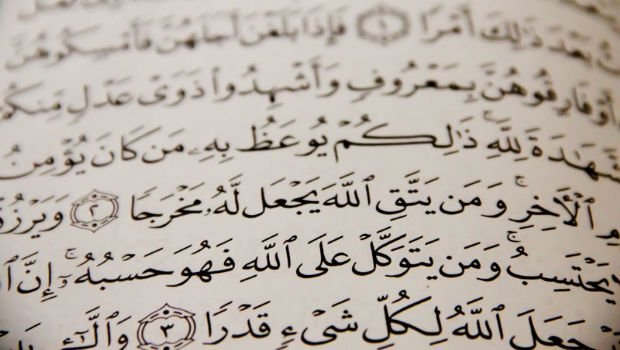 بَعْدَ ذَٰلِكَ أَمْرًا ١ فَإِذَا بَلَغْنَ أَجَلَهُنَّ فَأَمْسِكُوهُنَّ
أَوْ فَارِقُوهُنَّ بِمَعْرُوفٍ وَأَشْهِدُوا۟ ذَوَىْ عَدْلٍ مِّنكُمْ
ٱلشَّهَٰدَةَ لِلَّهِ ۚ ذَٰلِكُمْ يُوعَظُ بِهِۦ مَن كَانَ يُؤْمِنُ
ٱلْأَخِرِ ۚ وَمَن يَتَّقِ ٱللَّهَ يَجْعَل لَّهُۥ مَخْرَجًا ٢ وَيَرْزُقْ
يَحْتَسِبُ ۚ وَمَن يَتَوَكَّلْ عَلَى ٱللَّهِ فَهُوَ حَسْبُهُۥٓ ۚ إِنَّ
جَعَلَ ٱللَّهُ لِكُلِّ شَىْءٍ قَدْرًا ٣ وَٱلَّٰٓـِٔى